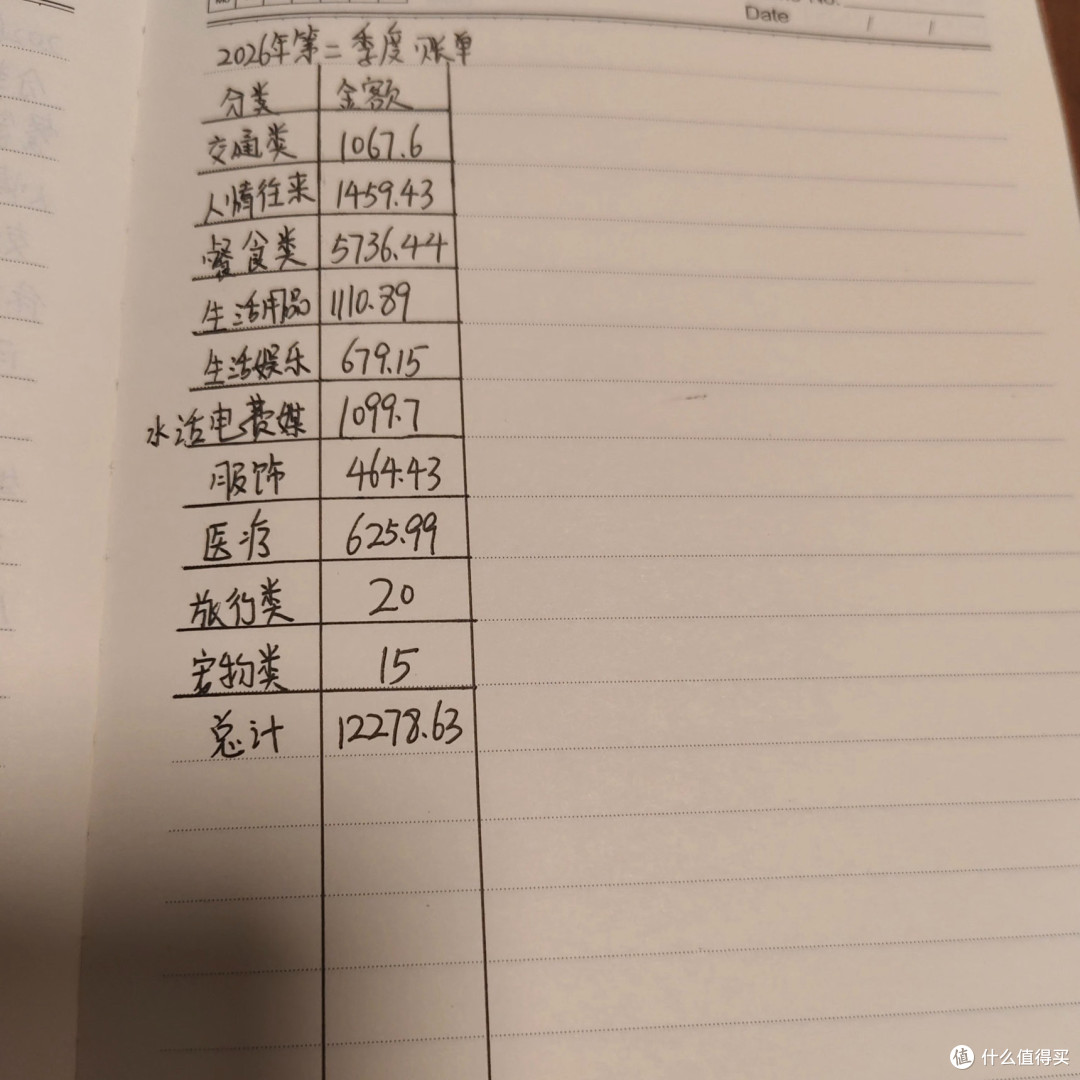 Date / /
2026年第二季度账单
分类 金额
交通类 1067.6
人情往来 1459.43
餐食类 5736.44
生活用品 1110.89
生活娱乐 679.15
水活电费媒 1099.7
服饰 464.43
医疗 625.99
旅行类 20
宠物类 15
总计 12278.63
值 什么值得买